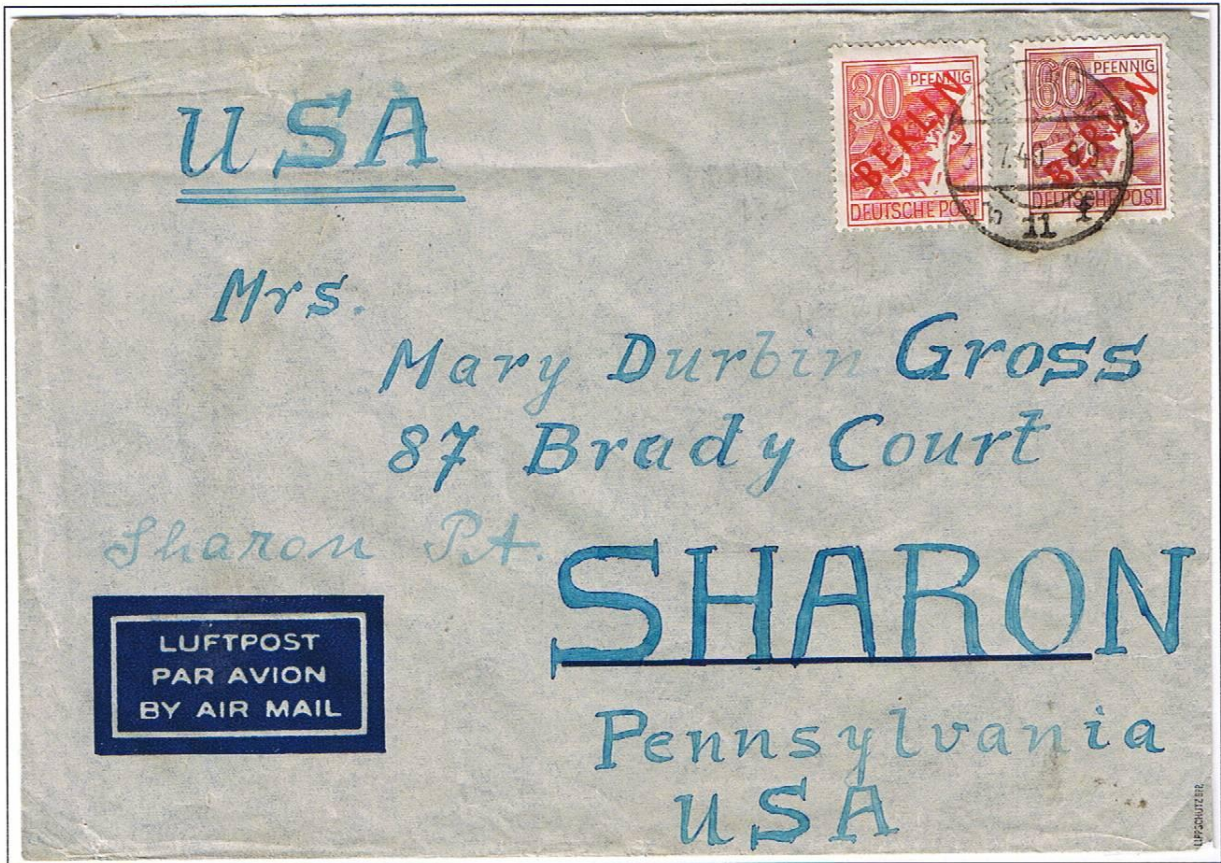 USA
30 PFENNIG
BERLIN
DEUTSCHE POST
60 PFENNIG
BERLIN
DEUTSCHE POST
11 f
Mrs.
Mary Durbin Gross
87 Brady Court
Sharon PA.
SHARON
Pennsylvania
USA
LUFTPOST
PAR AVION
BY AIR MAIL